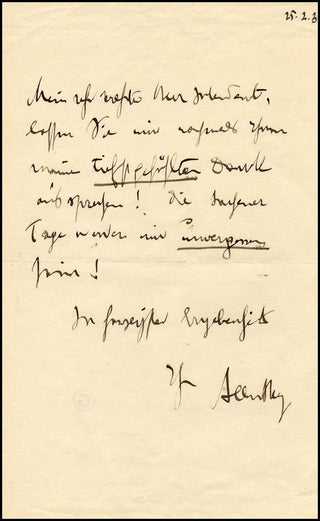 25.2.3
Mein sehr verehrter Herr Intendant,
lassen Sie mich nochmals Ihnen
meinen tiefstgefühlten Dank
aussprechen! Die Aachener
Tage werden mir unvergessen
sein!
In Ergebenheit
Ihr